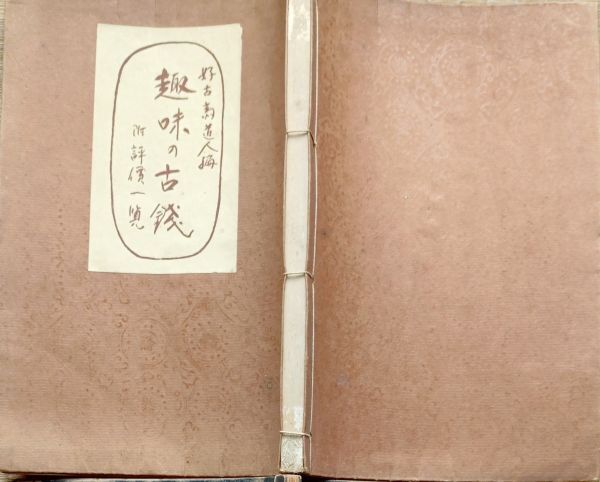 好古斎道人編
趣味の古錢
附評價一覧